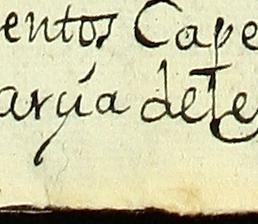 entos Cape
arýa dete